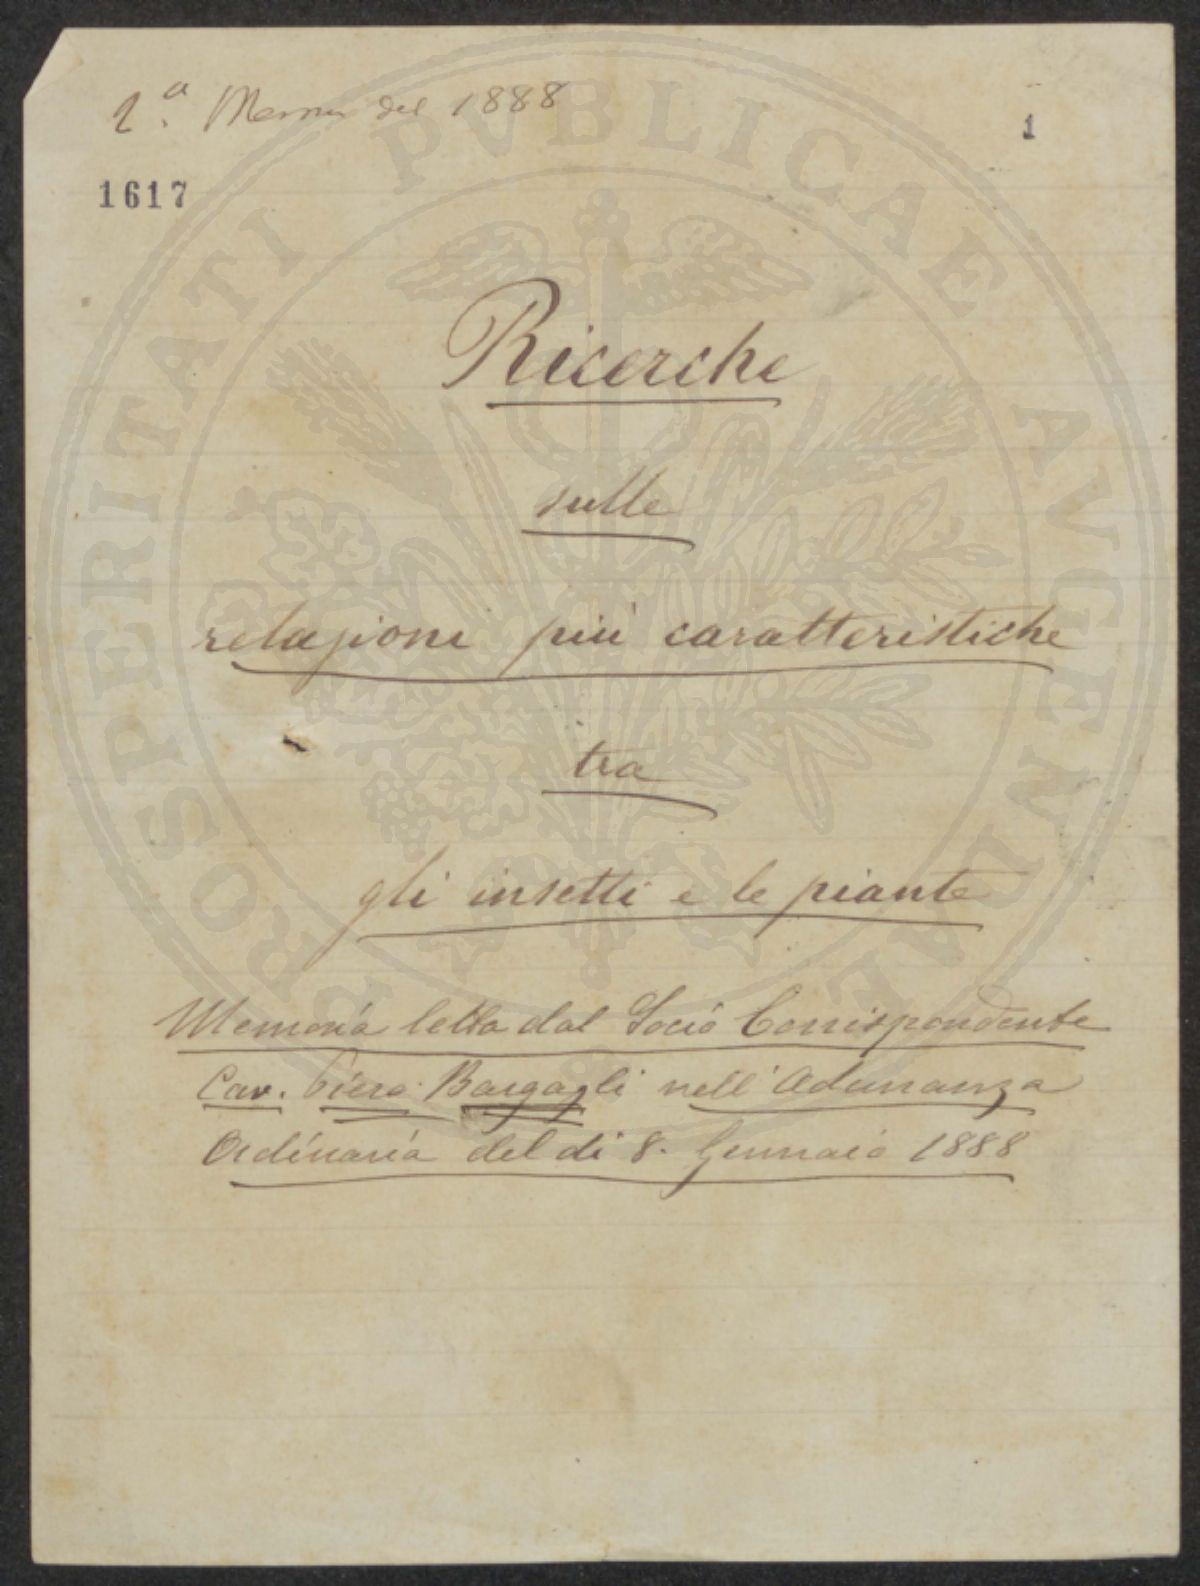 2.ª Memor del 1888
1
1617
Ricerche
sulle
relazioni più caratteristiche
tra
gli insetti e le piante
Memoria letta dal Socio Corrispondente
Cav. Piero Bargagli nell'Adunanza
Ordinaria del dì 8. Gennaio 1888
PROSPERITATI PVBLICAE AVGENDAE